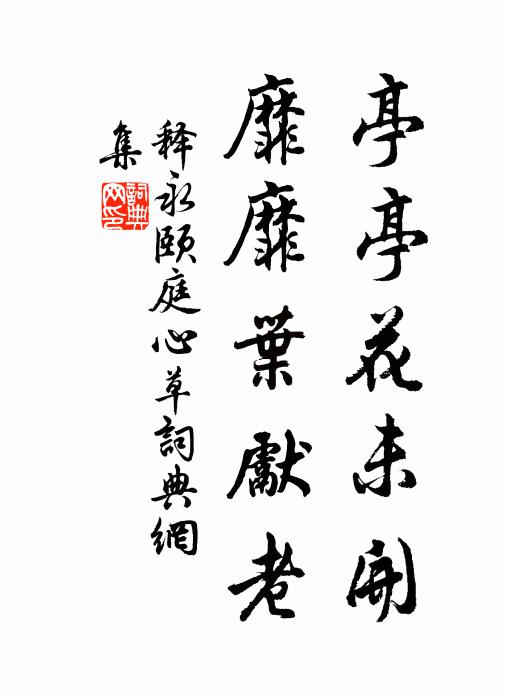 亭亭花未開
靡靡葉獻老
释永颐庭心草詞典網
集
詞典网印